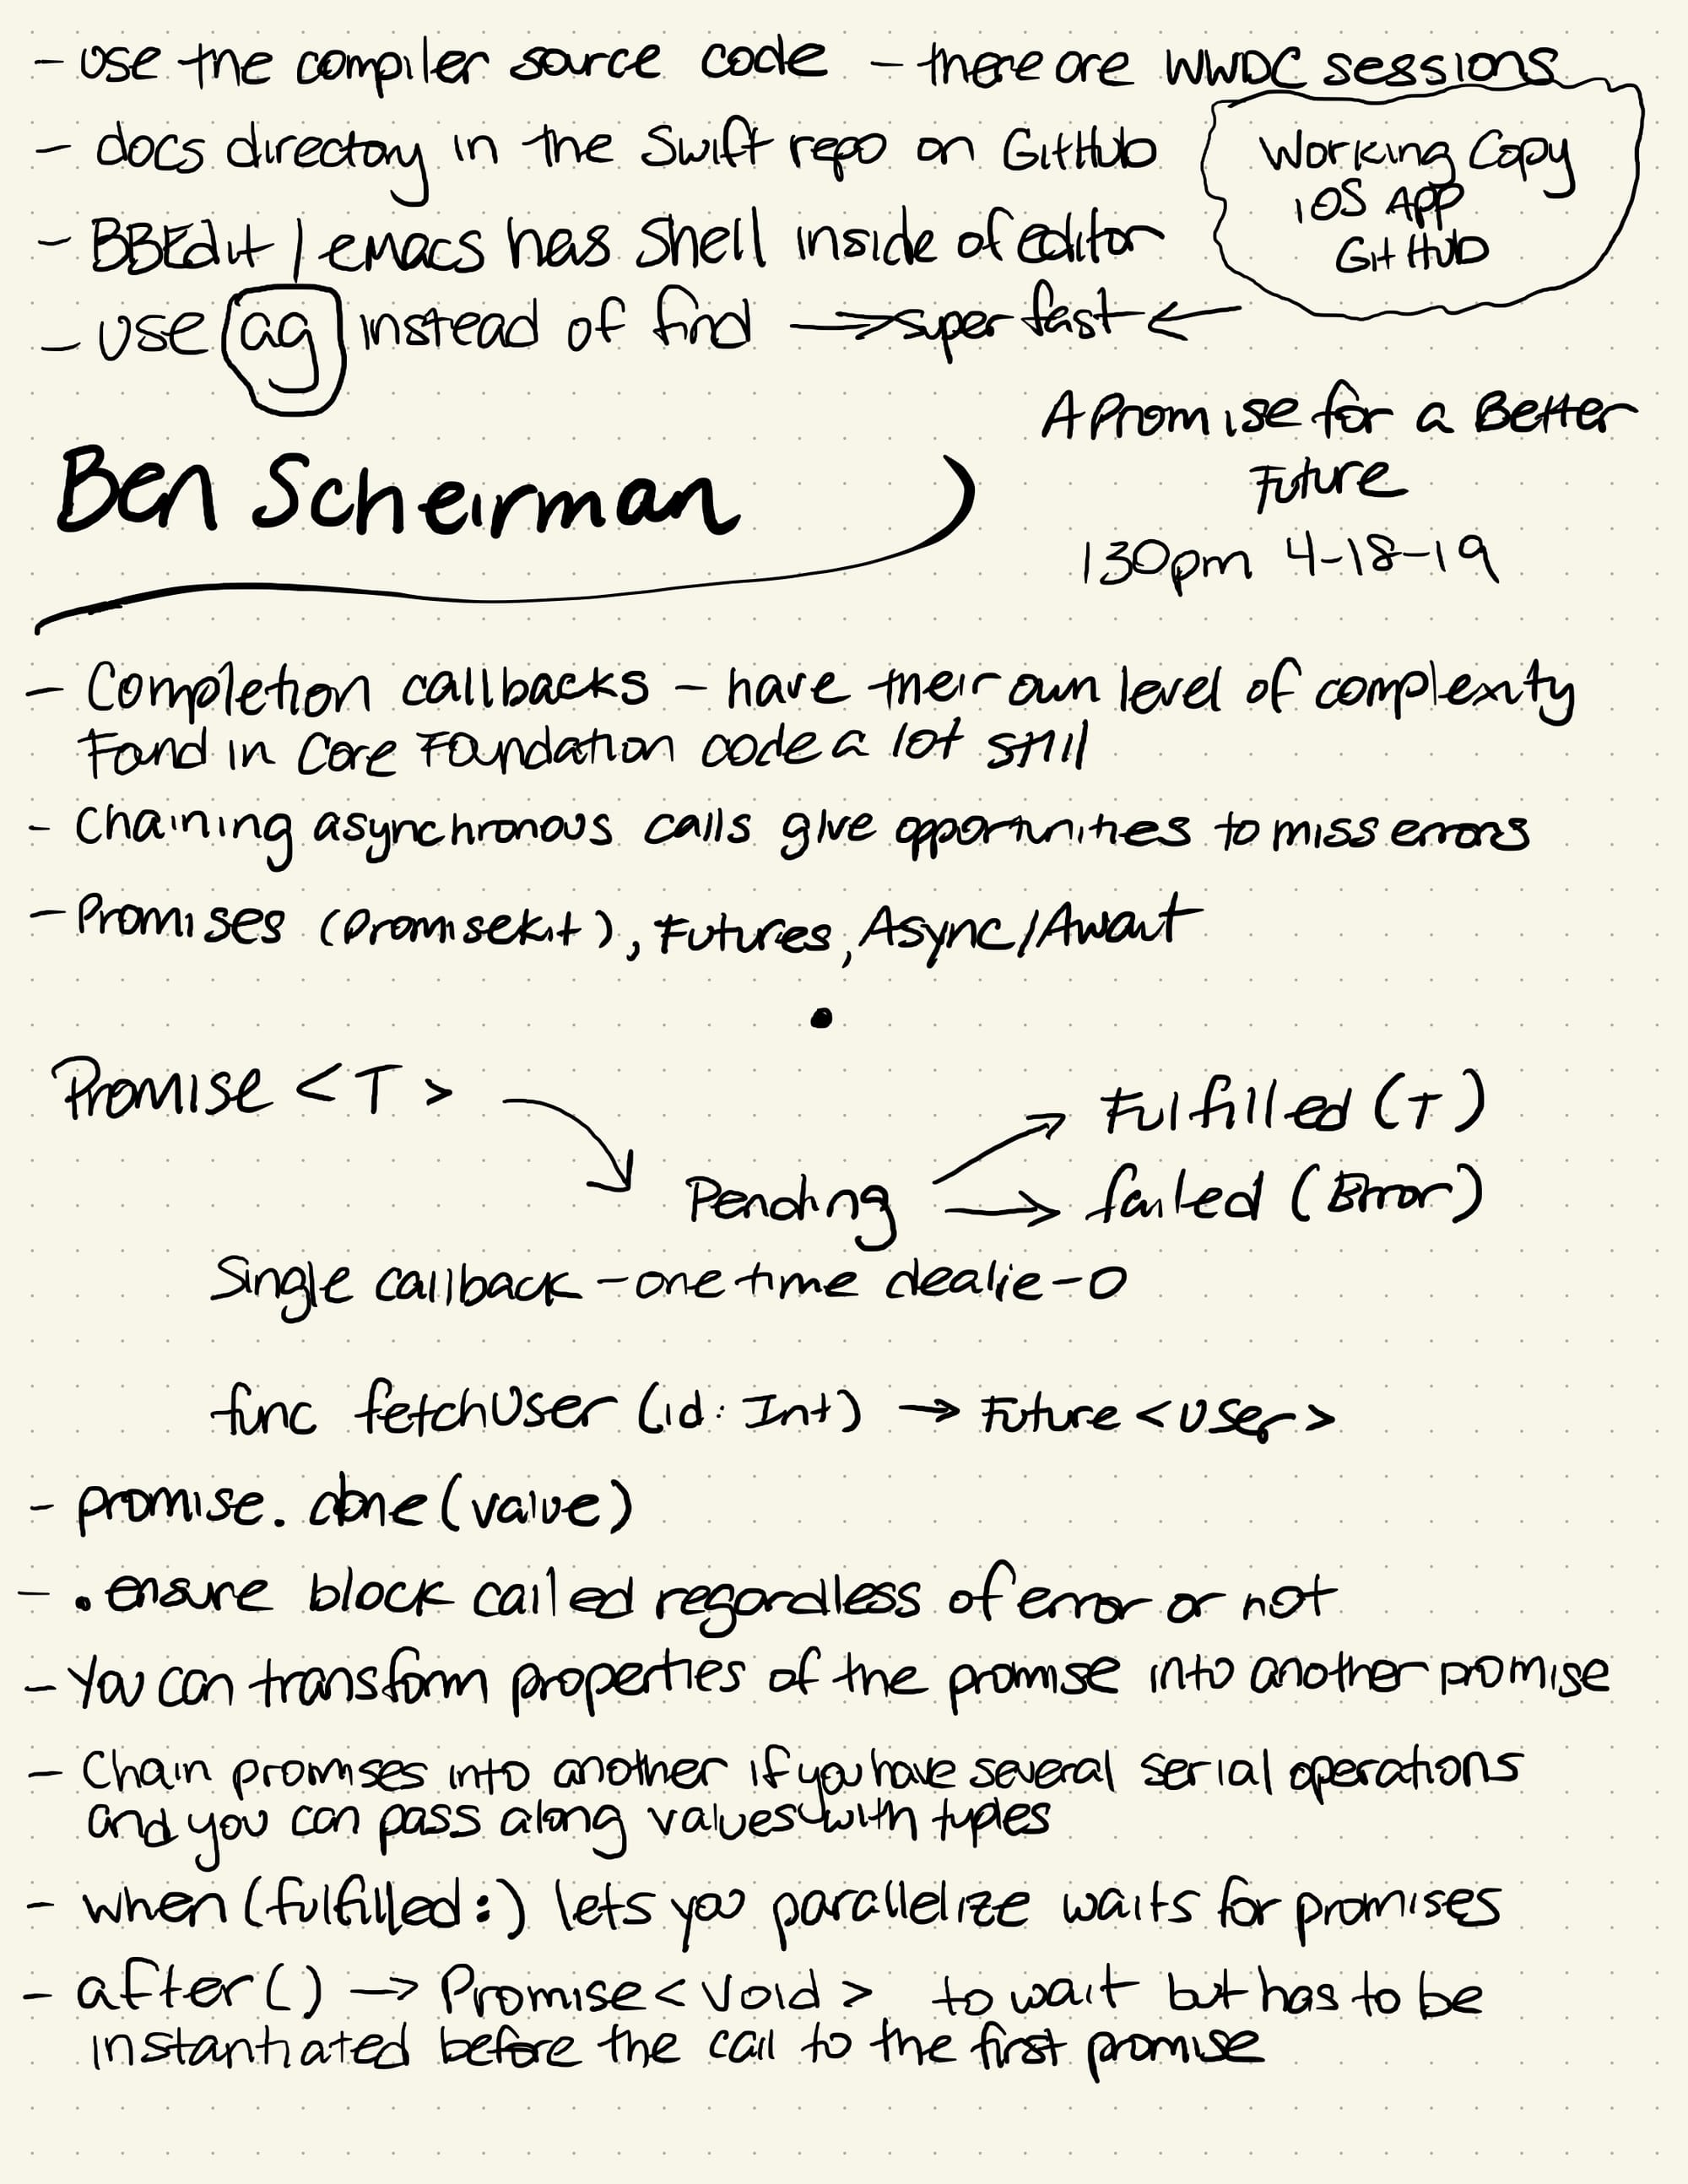 - use the compiler source code - there are WWDC sessions
- docs directory in the Swift repo on GitHub
Working Copy
iOS App
GitHub
- BBEdit / emacs has shell inside of editor
- use ag instead of find → super fast ←
Ben Scheirman
A Promise for a Better
Future
130pm 4-18-19
- Completion callbacks - have their own level of complexity
Found in Core Foundation code a lot still
- Chaining asynchronous calls give opportunities to miss errors
- Promises (Promisekit), Futures, Async/Await
Promise <T> → Pending → Fulfilled (T)
→ failed (Error)
Single callback - one time dealie-o
func fetchUser (id: Int) → Future <User>
- promise. done (value)
- .ensure block called regardless of error or not
- You can transform properties of the promise into another promise
- Chain promises into another if you have several serial operations
and you can pass along values with tuples
- when (fulfilled:) lets you parallelize waits for promises
- after() → Promise <Void> to wait but has to be
instantiated before the call to the first promise